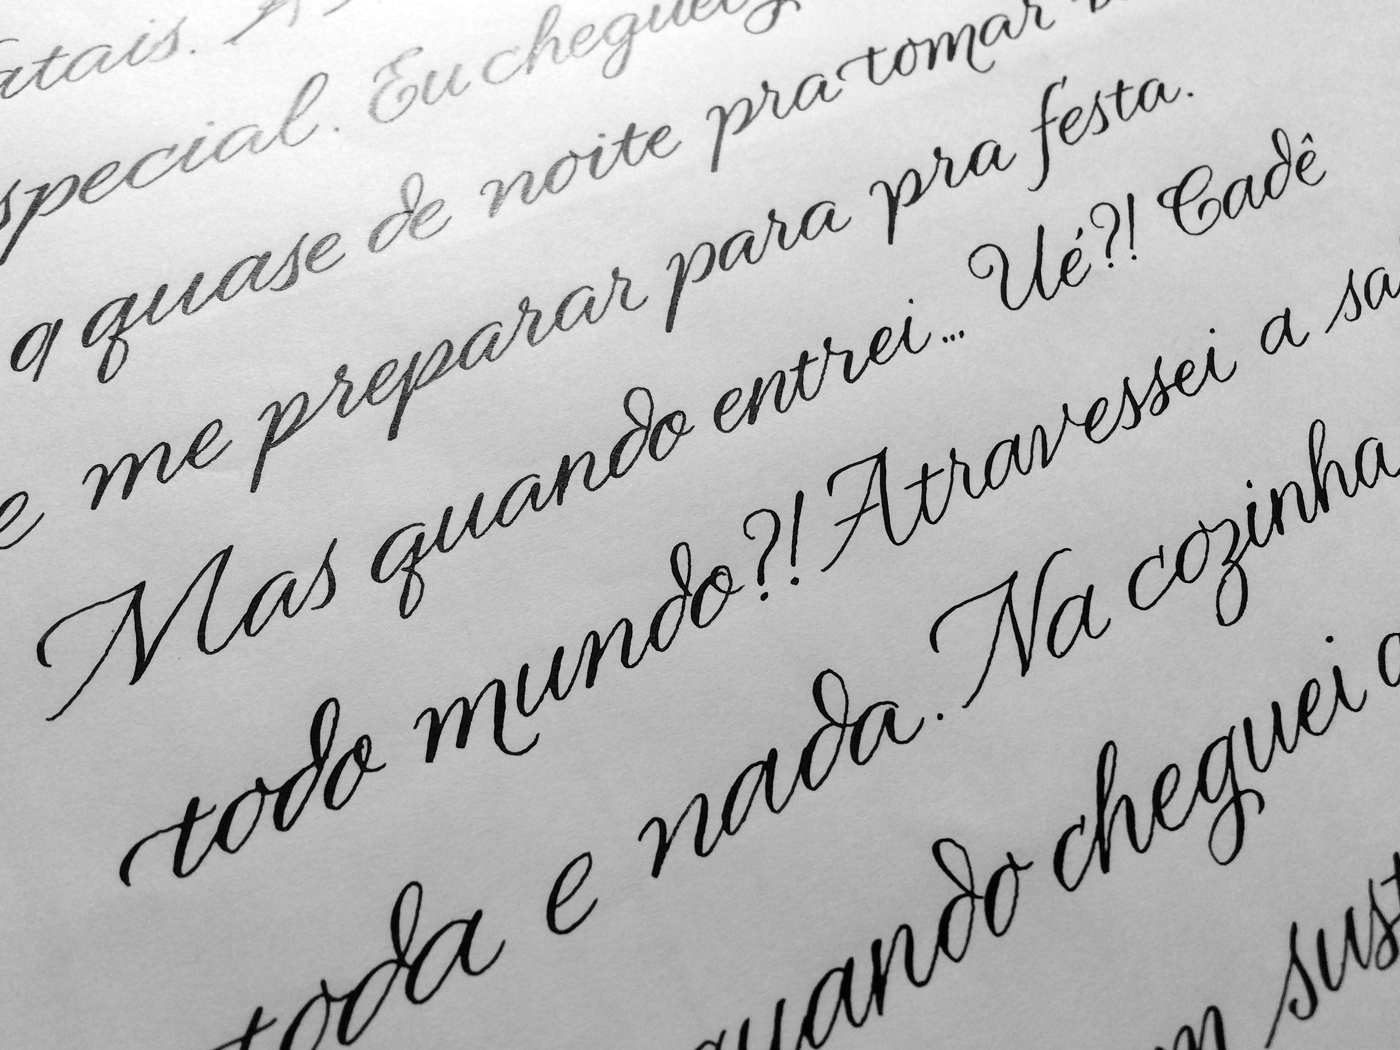 special. Eu cheguei
quase de noite pra tomar
e me preparar para pra festa.
Mas quando entrei... Ué?! Cadê
todo mundo?! Atravessei a sa
toda e nada. Na cozinha
quando cheguei
sust